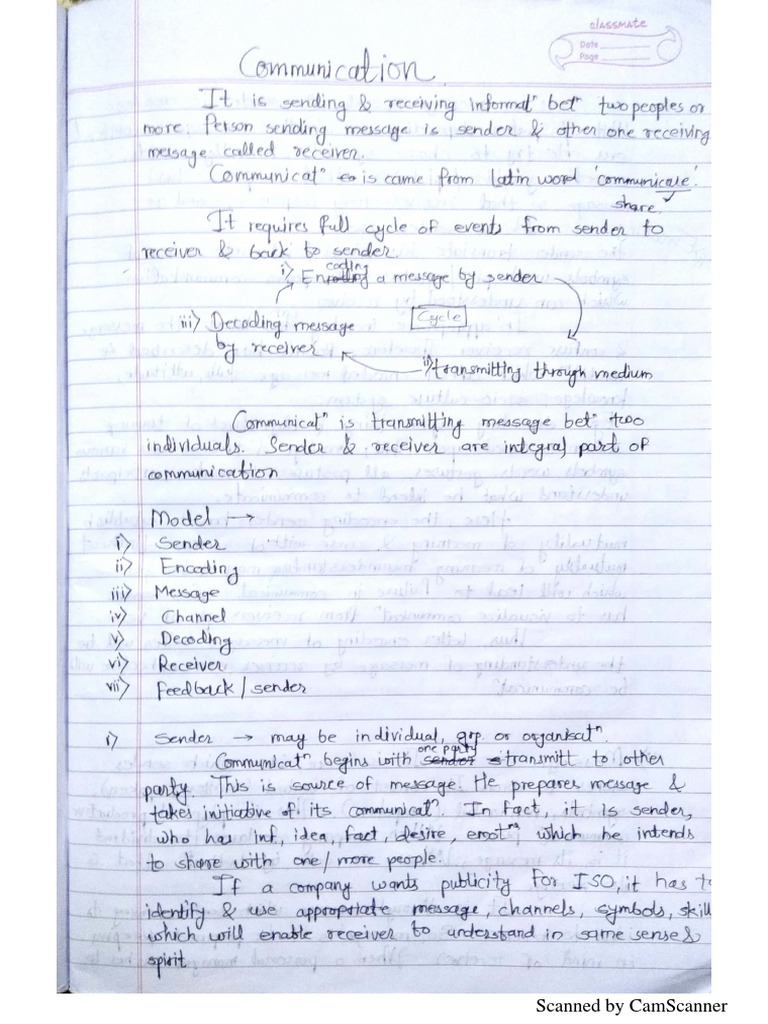 classmate
Date
Page
Communication
It is sending & receiving informatⁿ betⁿ two peoples or
more. Person sending message is sender & other one receiving
message called receiver.
Communicatⁿ is came from latin word 'communicare'.
share
It requires full cycle of events from sender to
receiver & back to sender.
i) Encoding a message by sender
iii) Decoding message
Cycle
by receiver
ii) transmitting through medium
Communicatⁿ is transmitting message betⁿ two
individuals. Sender & receiver are integral part of
communication
Model :→
i) Sender
ii) Encoding
iii) Message
iv) Channel
v) Decoding
vi) Receiver
vii) Feedback / sender
i) Sender → may be individual, grp or organisatⁿ.
Communicatⁿ begins with one party transmitt to other
party. This is source of message. He prepares message &
takes initiative of its communicatⁿ. In fact, it is sender,
who has inf, idea, fact, desire, which he intends
to share with one/more people.
If a company wants publicity for ISO, it has to
identify & use appropriate message, channels, symbols, skill
which will enable receiver to understand in same sense &
spirit
Scanned by CamScanner